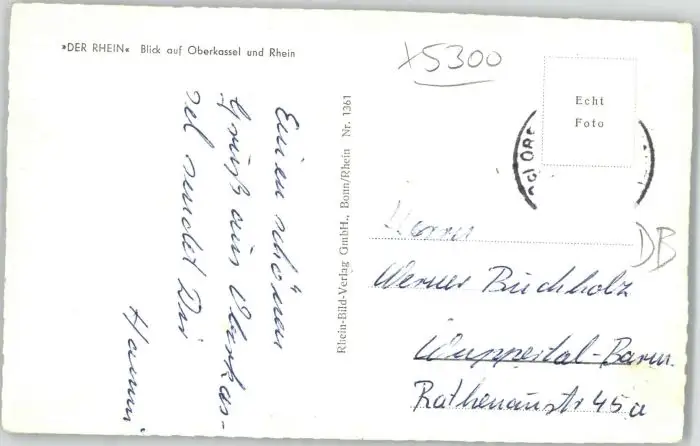 »DER RHEIN« Blick auf Oberkassel und Rhein
x5300
Echt
Foto
Einen schönen
Gruß aus Oberkas-
sel sendet Dir
Hanni
Rhein-Bild-Verlag GmbH., Bonn/Rhein Nr. 1361
Herrn
DB
Werner Buchholz
Wuppertal-Barm.
Rathenaustr 45a